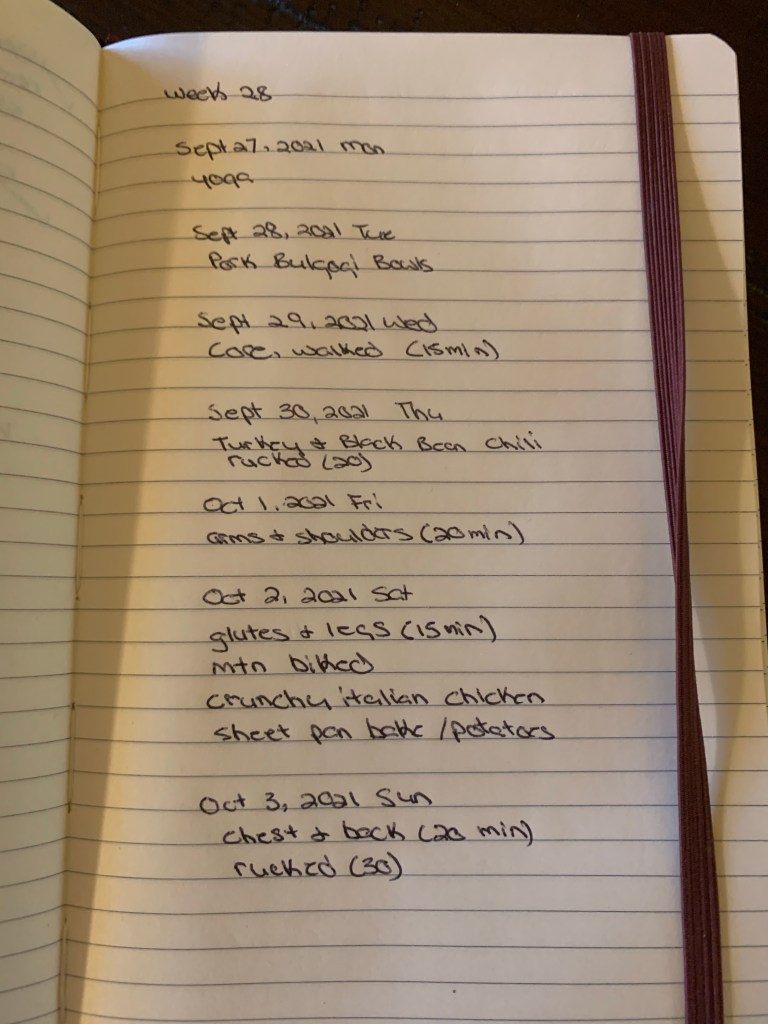 week 28
Sept 27, 2021 mon
yoga
Sept 28, 2021 Tue
Pork Bulgogi Bowls
Sept 29, 2021 Wed
Core, walked (15min)
Sept 30, 2021 Thu
Turkey & Black Bean Chili
rucked (20)
Oct 1, 2021 Fri
arms & shoulders (20min)
Oct 2, 2021 Sat
glutes & legs (15min)
mtn biked
crunchy italian chicken
sheet pan bake /potatoes
Oct 3, 2021 Sun
chest & back (20 min)
rucked (30)